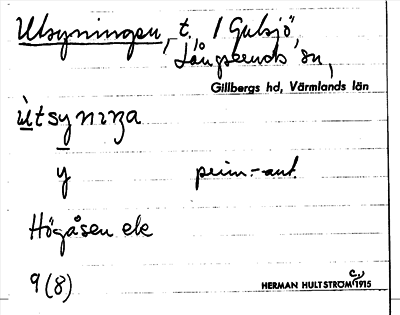 Utsyningen, t. 1 Gulsjö,
Långseruds sn,
Gillbergs hd, Värmlands län
ùtsyniŋa
y prim.-ant.
Högåsen ek
9(8)
HERMAN HULTSTRÖM 1915